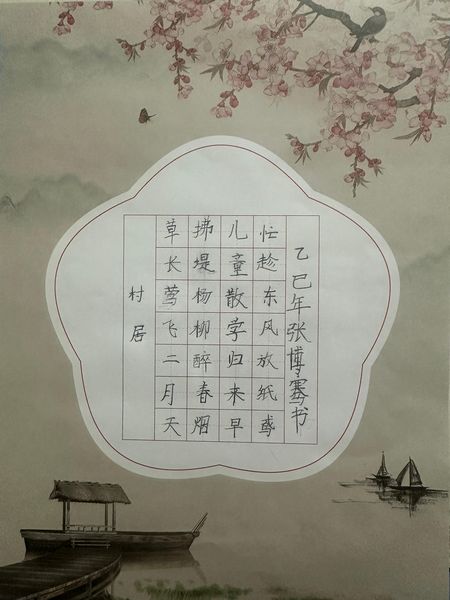 村居
草长莺飞二月天
拂堤杨柳醉春烟
儿童散学归来早
忙趁东风放纸鸢
乙巳年张博骞书